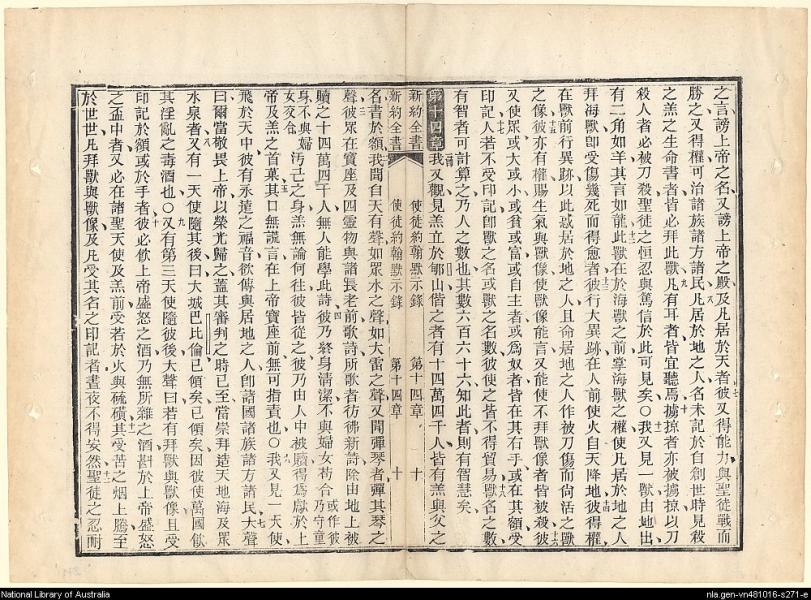 之言謗上帝之名又謗上帝之殿及凡居於天者彼又得能力與聖徒戰而
勝之又得權可治諸族諸方諸民凡居於地之人名未記於自創世時見殺
之羔之生命書者皆必拜此獸凡有耳者皆宜聽焉擄掠者亦被擄掠以刀
殺人者必被刀殺聖徒之恒忍與篤信於此可見矣○我又見一獸由地出
有二角如羊其言如龍此獸在於海獸之前掌海獸之權使凡居於地之人
拜海獸即受傷幾死而得愈者彼行大異跡在人前使火自天降地彼得權
在獸前行異跡以此惑居於地之人且命居地之人作被刀傷而尚活之獸
之像彼亦有權賜生氣與獸像使獸像能言又能使不拜獸像者皆被殺彼
又使眾或大或小或貧或富或自主者或為奴者皆在其右手或在其額受
印記人若不受印記即獸之名或獸之名數彼使之皆不得貿易獸名之數
有智者可計算之乃人之數也其數六百六十六知此者則有智慧矣
第十四章 我又觀見羔立於郇山偕之者有十四萬四千人皆有羔與父之
新約全書 使徒約翰默示錄 第十四章 十
新約全書 使徒約翰默示錄 第十四章 十
名書於額我聞自天有聲如眾水之聲如大雷之聲又聞彈琴者彈其琴之
聲彼眾在寶座及四靈物與諸長老前歌詩所歌者彷彿新詩除由地上被
贖之十四萬四千人無人能學此詩彼乃終身清潔不與婦女苟合或作彼乃守童
身不與婦女交合汚己之身羔無論何往彼皆從之彼乃由人中被贖得為獻於上
帝及羔之首菓其口無謊言在上帝寶座前無可指責也○我又見一天使
飛於天中彼有永遠之福音欲傳與居地之人即諸國諸族諸方諸民大聲
曰爾當敬畏上帝以榮光歸之蓋其審判之時已至當崇拜造天地海及眾
水泉者又有一天使隨其後曰大城巴比倫已傾矣已傾矣因彼使萬國飲
其淫亂之毒酒也○又有第三天使隨彼後大聲曰若有拜獸與獸像且受
印記於額或於手者彼必飲上帝盛怒之酒乃無所雜之酒斟於上帝盛怒
之盃中者又必在諸聖天使及羔前受苦於火與硫磺其受苦之烟上騰至
於世世凡拜獸與獸像及凡受其名之印記者晝夜不得安然聖徒之忍耐
National Library of Australia
nla.gen-vn481016-s271-e